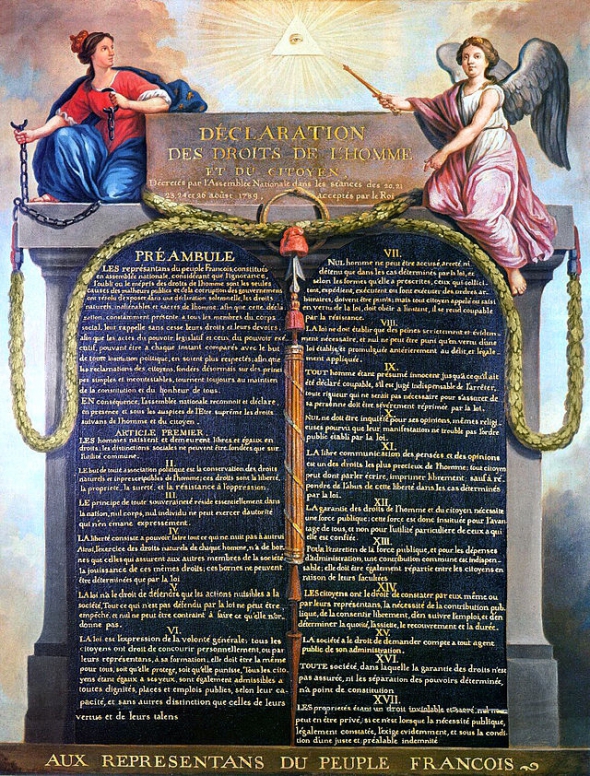 DÉCLARATION
DES DROITS DE L'HOMME
ET DU CITOYEN,
Décretés par l'Assemblée Nationale dans les séances des 20, 21
23, 24 et 26 août 1789, Acceptés par le Roi
PRÉAMBULE
LES représentans du peuple Francois, constitués
en assemblée nationale, considérant que l'ignorance,
l'oubli ou le mépris des droits de l'homme sont les seules
causes des malheurs publics et de la corruption des gouvernemens
ont résolu d'exposer dans une déclaration solemnelle, les droits
naturels, inaliénables et sacrés de l'homme, afin que cette décla
ration, constamment présente a tous les membres du corps
social, leur rappelle sans cesse leurs droits et leurs devoirs,
afin que les actes du pouvoir législatif et ceux du pouvoir exé
cutif, pouvant être a chaque instant comparés avec le but
de toute institution politique, en soient plus respectés; afin que
les réclamations des citoyens, fondées désormais sur des princi
pes simples et incontestables, tournent toujours au maintien
de la constitution et du bonheur de tous.
EN conséquence, l'assemblée nationale reconnoit et déclare,
en presence et sous les auspices de l'Etre suprême les droits
suivans de l'homme et du citoyen.
ARTICLE PREMIER.
LES hommes naissent et demeurent libres et égaux en
droits; les distinctions sociales ne peuvent être fondées que sur
l'utilité commune.
II.
LE but de toute association politique est la conservation des droits
naturels et inprescriptibles de l'homme; ces droits sont la liberté,
la propriété, la sureté, et la résistance à l'oppression.
III.
LE principe de toute souveraineté réside essentiellement dans
la nation, nul corps, nul individu ne peut exercer d'autorité
qui n'en émane expressement.
IV.
LA liberté consiste a pouvoir faire tout ce qui ne nuit pas à autrui
Ainsi, l'exercice des droits naturels de chaque homme, n'a de bor
nes que celles qui assurent aux autres membres de la société
la jouissance de ces mêmes droits; ces bornes ne peuvent
être déterminées que par la loi
V.
LA loi n'a le droit de défendre que les actions nuisibles a la
société. Tout ce qui n'est pas défendu par la loi ne peut être
empêché, et nul ne peut être contraint à faire ce qu'elle n'or
donne pas.
VI.
LA loi est l'expression de la volonté générale; tous les
citoyens ont droit de concourir personnellement, ou par
leurs représentans, à sa formation; elle doit être la même
pour tous, soit qu'elle protege, soit qu'elle punisse. Tous les cito
yens étant égaux a ses yeux, sont également admissibles a
toutes dignités, places et emplois publics, selon leur ca
pacité, et sans autres distinction que celles de leurs
vertus et de leurs talens
VII.
NUL homme ne peut être accusé, arreté, ni
détenu que dans les cas déterminés par la loi, et
selon les formes qu'elle a prescrites, ceux qui sollici
tent, expédient, exécutent ou font exécuter des ordres ar
bitraires, doivent être punis; mais tout citoyen appelé ou saisi
en vertu de la loi, doit obéir a l'instant, il se rend coupable
par la résistance.
VIII.
LA loi ne doit établir que des peines strictement et évidem
ment nécessaire, et nul ne peut être puni qu'en vertu d'une
loi établie et promulguée antérieurement au délit, et légale
ment appliquée.
IX.
TOUT homme étant présumé innocent jusqu'a ce qu'il ait
été déclaré coupable, s'il est jugé indispensable de l'arrêter,
toute rigueur qui ne serait pas nécessaire pour s'assurer de
sa personne doit être sévèrement réprimée par la loi.
X.
NUL ne doit être inquiété pour ses opinions, mêmes religi
euses pourvu que leur manifestation ne trouble pas l'ordre
public établi par la loi.
XI.
LA libre communication des pensées et des opinions
est un des droits les plus precieux de l'homme; tout citoyen
peut donc parler écrire, imprimer librement; sauf à ré
pondre de l'abus de cette liberté dans les cas déterminés
par la loi.
XII.
LA garantie des droits de l'homme et du citoyen nécessite
une force publique; cette force est donc instituée pour l'avan
tage de tous, et non pour l'utilité particuliere de ceux a qui
elle est confiée.
XIII.
Pour l'entretien de la force publique, et pour les dépenses
d'administration, une contribution commune est indispen
sable; elle doit être également répartie entre les citoyens en
raison de leurs facultées
XIV.
LES citoyens ont le droit de constater par eux même ou
par leurs représentans, la nécessité de la contribution pub
lique, de la consentir librement, d'en suivre l'emploi, et d'en
déterminer la quotité, l'assiette, le recouvrement et la durée.
XV.
LA société a le droit de demander compte a tout agent
public de son administration.
XVI.
TOUTE société, dans laquelle la garantie des droits n'est
pas assurée, ni la séparation des pouvoirs déterminée,
n'a point de constitution.
XVII.
LES propriétés étant un droit inviolable et sacré, nul ne
peut en être privé, si ce n'est lorsque la nécessité publique,
légalement constatée, l'exige évidemment, et sous la condi
tion d'une juste et préalable indemnité
AUX REPRESENTANS DU PEUPLE FRANCOIS